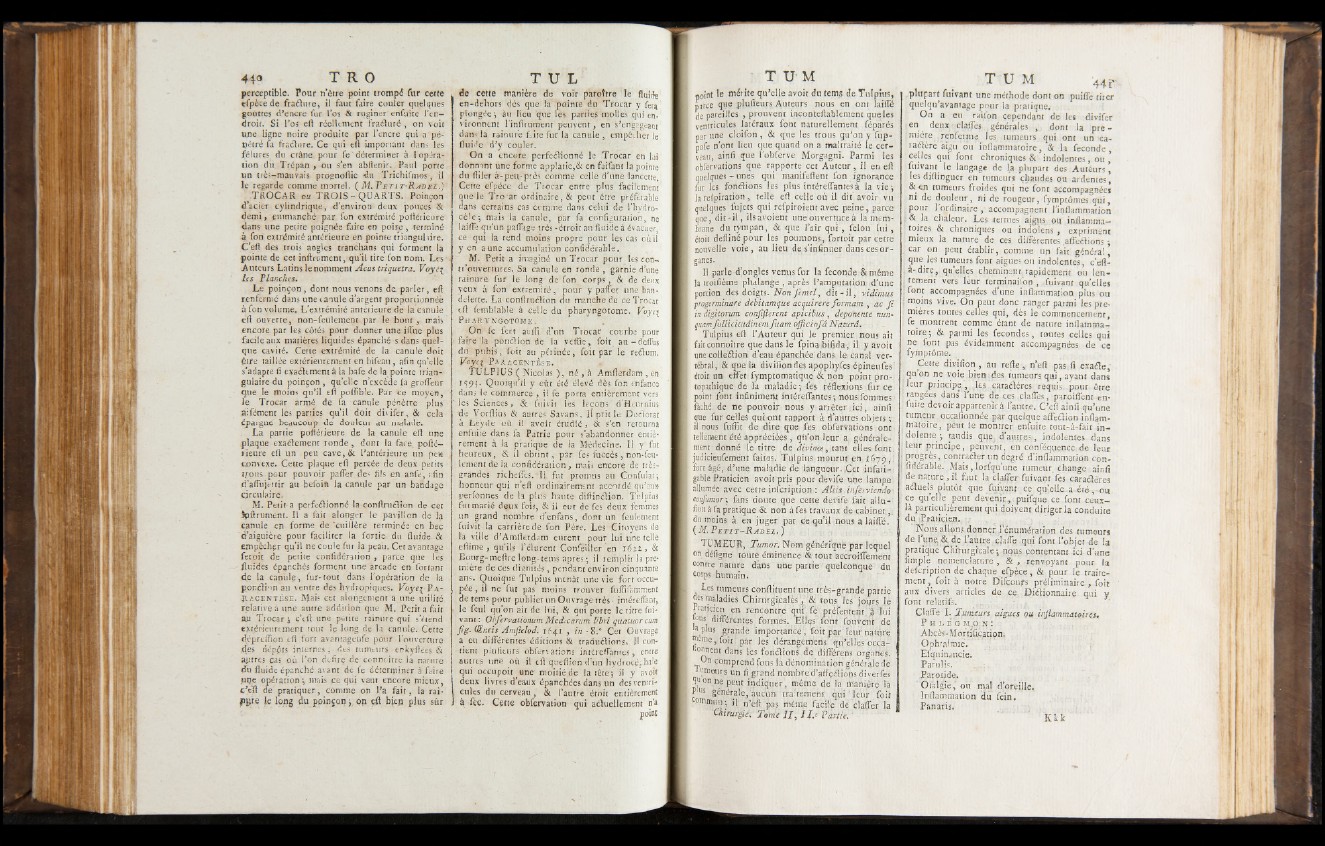 440 T R O
perceptible. Pour n'être point trompé sur cette
espèce de fracture, il faut faire couler quelques
gouttes d'encre sur l'os & ruginer ensuite l'en-
droit. Si l'os est réellement fracturé, on voit
une ligne noire produite par l'encre qui a pé-
nétré la fracture. Ce qui est important dans les
fêlures du crâne pour se déterminer à l'opéra-
tion du Trépan, ou s'en abstenir. Paul porte
un très-mauvais prognostic du Trichismos, il
le regarde comme mortel. (M. PETIT-RADEL.)
TROCAR ou TROIS-QUARTS. Poinçon
d'acier cylindrique, d'environ deux pouces &
demi, emmanché par son extrémité postérieure
dans une petite poignée faite en poire, terminé
à son extrémité antérieure en pointe triangulaire.
C'est des trois angles tranchans qui forment la
pointe de cet instrument, qu'il tire son nom. Les
Auteurs Latins le nomment Acus triquetra. Voyez
les Planches.
Le poinçon, dont nous venons de parler, est
renfermé dans une canule d'argent proportionnée
à son volume. L'extrémité antérieure de la canule
est ouverte, non-seulement par le bout, mais
encore par les côtés pour donner une issue plus
facile aux matières liquides épanchées dans quel-
que cavité. Cette extrémité de la canule doit
être taillée extérieurement en biseau, afin qu'elle
s'adapte si exactement à la base de la pointe trian-
gulaire du poinçon, qu'elle n'excède sa grosseur
que le moins qu'il est possible. Par ce moyen,
le Trocar armé de sa canule pénètre plus
aisément les parties qu'il doit diviser, & cela
épargne beaucoup de douleur au malade.
La partie postérieure de la canule est une
plaque exactement ronde, dont la face posté-
rieure est un peu cave, & l'antérieure un peu
convexe. Cette plaque est percée de deux petits
trous pour pouvoir passer des fils en anse, afin
d'assujettir au besoin la canule par un bandage
circulaire.
M. Petit a perfectionné la construction de cet
Instrument. Il a fait alonger le pavillon de la
canule en forme de cuillère terminée en bec
d'aiguière pour faciliter la sortie du fluide &
empêcher qu'il ne coule sur la peau. Cet avantage
seroit de petite considération, parce que les
fluides épanchés forment une arcade en sortant
de la canule, sur-tout dans l'opération de la
ponction au ventre des hydropiques. Voyez PA-
RACENTÈSE. Mais cet alongement a une utilité
relative à une autre addition que M. Petit a fait
au Trocar; c'est une petite rainure qui s'étend
extérieurement tout le long de la canule. Cette
dépression est fort avantageuse pour l'ouverture
des dépôts internes, des tumeurs enkystées &
autres cas où l'on desire de connoître la nature
du fluide épanché avant de se déterminer à faire
une opération; mais ce qui vaut encore mieux,
c'est de pratiquer, comme on l'a fait, la rai-
nure le long du poinçon, on est bien plus sûr
T U L
de cette manière de voir paroître le fluide
en-dehors dès que la pointe du Trocar y sera
plongée; au lieu que les parties molles qui en-
vironnent l'instrument peuvent, en s'engageant
dans la rainure faite sur la canule, empêcher le
fluide d'y couler.
On a encore perfectionné le Trocar en lui
donnant une forme applatie, & en faisant la pointe
du stilet à-peu-près comme celle d'une lancette.
Cette espèce de Trocar entre plus facilement
que le Trocar ordinaire, & peut être préférable
dans certains cas comme dans celui de l'hydro-
cèle; mais la canule, par sa configuration, ne
laisse qu'un passage très-étroit au fluide à évacuer,
ce qui la rend moins propre pour les cas où il
y en a une accumulation considérable.
M. Petit a imaginé un Trocar pour les con-
tr'ouvertures. Sa canule en ronde, garnie d'une
rainure sur le long de son corps, & de deux
yeux à son extrémité, pour y passer une ban-
delette. La construction du manche de ce Trocar
est semblable à celle du pharyngotome. Voyez
PHARYNGOTOME.
On se sert aussi d'un Trocar courbe pour
faire la ponction de la vessie, soit au-dessus
du pubis, soit au périnée, soit par le rectum.
Voyez PARACENTÈSE.
TULPIUS (Nicolas), né, à Amsterdam, en
1593. Quoiqu'il y eût été élevé dès son enfance
dans le commerce, il se porta entièrement vers
les Sciences, & suivit les leçons d'Heurnius
de Vorstius & autres Savans. Il prit le Doctorat
à Leyde où il avoit étudié, & s'en retourna
ensuite dans sa Patrie pour s'abandonner entiè-
rement à la pratique de la Médecine. Il y fut
heureux, & il obtint, par ses succès, non-seu-
lement de la considération, mais encore de très-
grandes richesses. Il fut promus au Consulat;
honneur qui n'est ordinairement accordé qu'aux
personnes de la plus haute distinction. Tulpius
fut marié deux fois, & il eut de ses deux femmes
un grand nombre d'enfans, dont un seulement
suivit la carrière de son Père. Les Citoyens de
la ville d'Amsterdam eurent pour lui une telle
estime, qu'ils l'élurent Conseiller en 1622, &
Bourg-mestre long-tems après; il remplit la pre-
mière de ces dignités, pendant environ cinquante
ans. Quoique Tulpius menât une vie fort occu-
pée, il ne sut pas moins trouver suffisamment
de tems pour publier un Ouvrage très-intéressant,
le seul qu'on ait de lui, & qui porte le titre sui-
vant: Observationum Medicarum libri quatuor cum
fig. Æneis Amstelod. 1641, in-8.° Cet Ouvrage
a eu différentes éditions & traductions. Il con-
tient plusieurs observations intéressantes, entre
autres une où il est question d'un hydrocéphale
qui occupoit une moitié de la tête; il y avoit
deux livres d'eaux épanchées dans un des ventri-
cules du cerveau, & l'autre étoit entièrement
à sec. Cette observation qui actuellement n'a
point
T U M
point le mérite qu'elle avoit du tems de Tulpius,
parce que plusieurs Auteurs nous en ont laissé
de pareilles, prouvent incontestablement que les
ventricules latéraux sont naturellement séparés
par une cloison, & que les trous qu'on y sup-
pose n'ont lieu que quand on a maltraité le cer-
veau, ainsi que l'observe Morgagni. Parmi les
observations que rapporte cet Auteur, il en est
quelques-unes qui manifestent son ignorance
sur les fonctions les plus intéressantes à la vie;
la respiration, telle est celle où il dit avoir vu
quelques sujets qui respiroient avec peine, parce
que, dit-il, ils avoient une ouverture à la mem-
brane du tympan, & que l'air qui, selon lui,
étoit destiné pour les poumons, sortoit par cette
nouvelle voie, au lieu de s'insinuer dans ces or-
ganes.
Il parle d'ongles venus sur la seconde & même
la troisième phalange, après l'amputation d'une
portion des doigts. Non semel, dit-il, vidimus
progerminare debitamque acquirere formam, ac si
in digitorum consisterent apicibus, deponente nun-
quam sollicitudinem suam officiosâ Naturâ.
Tulpius est l'Auteur qui le premier nous ait
fait connoître que dans le spina bifida, il y avoit
une collection d'eau épanchée dans le canal ver-
tébral, & que la division des apophyses épineuses
étoit un effet symptomatique & non point pro-
topathique de la maladie; ses réflexions sur ce
point sont infiniment intéressantes; nous sommes
fâché de ne pouvoir nous y arrêter ici, ainsi
que sur celles qui ont rapport à d'autres objets;
il nous suffit de dire que ses observations ont
tellement été appréciées, qu'on leur a générale-
ment donné le titre de divines, tant elles sont
judicieusement faites. Tulpius mourut en 1679,
fort âgé, d'une maladie de langueur. Cet infati-
gable Praticien avoit pris pour devise une lampe
allumée avec cette inscription: Aliis inserviendo
consumor; sans doute que cette devise fait allu-
sion à sa pratique & non à ses travaux de cabinet,
du moins à en juger par ce qu'il nous a laissé.
(M. PETIT-RADEL.)
TUMEUR, Tumor. Nom générique par lequel
on désigne toute éminence & tout accroissement
contre nature dans une partie quelconque du
corps humain.
Les tumeurs constituent une très-grande partie
des maladies Chirurgicales, & tous les jours le
Praticien en rencontre qui se présentent à lui
sous différentes formes. Elles sont souvent de
la plus grande importance, soit par leur nature
même, soit par les dérangemens qu'elles occa-
sionnent dans les fonctions de différens organes.
On comprend sous la dénomination générale de
Tumeurs un si grand nombre d'affections diverses
qu'on ne peut indiquer, même de la manière la
plus générale, aucun traitement qui leur soit
commun; il n'est pas même facile de classer la
Chirurgie. Tome II, II.e Partie.
T U M 441
plupart suivant une méthode dont on puisse tirer
quelqu'avantage pour la pratique.
On a eu raison cependant de les diviser
en deux classes générales, dont la pre-
mière renferme les tumeurs qui ont un ca-
ractère aigu ou inflammatoire, & la seconde,
celles qui sont chroniques & indolentes, ou,
suivant le langage de la plupart des Auteurs,
les distinguer en tumeurs chaudes ou ardentes,
& en tumeurs froides qui ne sont accompagnées
ni de douleur, ni de rougeur, symptômes qui,
pour l'ordinaire, accompagnent l'inflammation
& la chaleur. Les termes aigus ou inflamma-
toires & chroniques ou indolens, expriment
mieux la nature de ces différentes affections;
car on peut établir, comme un fait général,
que les tumeurs sont aigues ou indolentes, c'est-
à-dire, qu'elles cheminent rapidement ou len-
tement vers leur terminaison, suivant qu'elles
sont accompagnées d'une inflammation plus ou
moins vive. On peut donc ranger parmi les pre-
mières toutes celles qui, dès le commencement,
se montrent comme étant de nature inflamma-
toire; & parmi les secondes, toutes celles qui
ne sont pas évidemment accompagnées de ce
symptôme.
Cette division, au reste, n'est pas si exacte,
qu'on ne voie bien des tumeurs qui, ayant dans
leur principe, les caractères requis pour être
rangées dans l'une de ces classes, paroissent en-
suite devoir appartenir à l'autre. C'est ainsi qu'une
tumeur occasionnée par quelque affection inflam-
matoire, peut se montrer ensuite tout-à-fait in-
dolente; tandis que d'autres, indolentes dans
leur principe, peuvent, en conséquence de leur
progrès, contracter un degré d'inflammation con-
sidérable. Mais, lorsqu'une tumeur change ainsi
de nature, il faut la classer suivant ses caractères
actuels plutôt que suivant ce qu'elle a été, ou
ce qu'elle peut devenir, puisque ce sont ceux-
là particulièrement qui doivent diriger la conduite
du Praticien.
Nous allons donner l'énumération des tumeurs
de l'une & de l'autre classe qui font l'objet de la
pratique Chirurgicale; nous contentant ici d'une
simple nomenclature, & renvoyant pour la
description de chaque espèce, & pour le traite-
ment, soit à notre Discours préliminaire, soit
aux divers articles de ce Dictionnaire qui y
sont relatifs.
Classe I. Tumeurs aigues ou inflammatoires.
PHLEGMON:
Abcès-Mortification.
Ophtalmie.
Esquinancie.
Parulis.
Parotide.
Otalgie, ou mal d'oreille.
Inflammation du sein.
Panaris.
Kkk